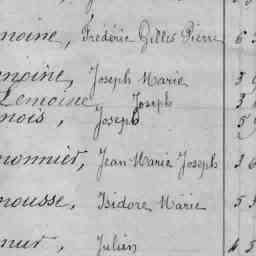 moine, Frédéric Gilles Pierre
moine, Joseph Marie 3
Lemoine Joseph 3
nois, Joseph 5
onnier, Jean Marie Joseph 36
mousse, Isidore Marie 5
mur, Julien 45